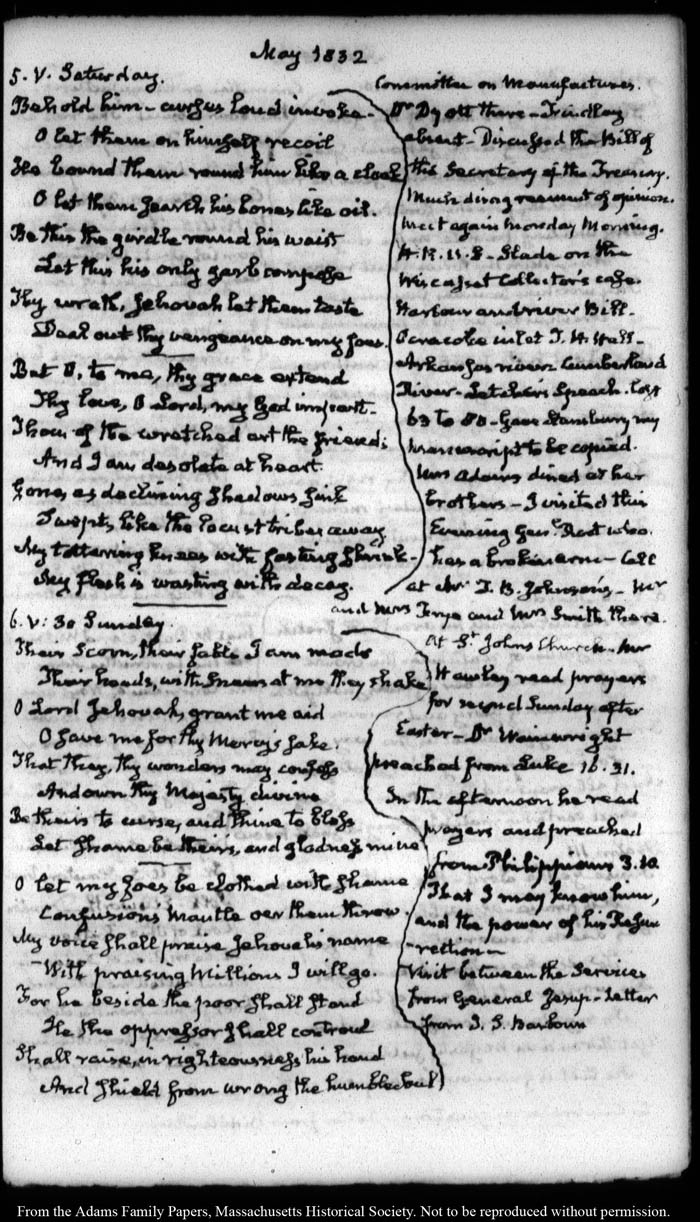 May 1832
5. V. Saturday.
Behold him – curses loud invoke.
O let them on himself recoil
He bound them round him like a cloak
O let them search his bones like oil.
Be this the girdle round his waist
Let this his only garb compose
Thy wrath, Jehovah let them taste
Deal out thy vengeance on my foes.
But O, to me, thy grace extend
Thy love, O Lord, my God impart –
Thou of the wretched art the friend;
And I am desolate at heart.
Gone, as declining shadows sink
Swept, like the locust tribes away
My tottering knees with fasting shrink –
My flesh is wasting with decay.
Committee on Manufactures.
Dr Dyott there – Findlay
absent – Discussed the Bill of
the Secretary of the Treasury.
Much disagreement of opinion.
meet again Monday Morning.
H. R. U. S – Slade on the
Wiscasset Collector's case.
Harbour and river Bill –
Ocracoke inlet T. H. Hall –
Arkansas river Cumberland
River – Letcher's Speech. lost
63 to 80 – Gave Stansbury my
manuscript to be copied.
Mrs Adams dined at her
brothers – I visited this
Evening Genl. Root who
has a broken arm – Call
at Mr T. B. Johnson's – Mr
and Mrs Frye and Mrs Smith there.
6. V: 30 Sunday.
Their Scorn, their fable I am made
Their heads, with sneers at me they shake
O Lord Jehovah, grant me aid
O save me for thy Mercy's sake.
That they, thy wonders may confess
And own thy Majesty divine
Be theirs to curse, and thine to bless
Let shame be theirs, and gladness mine
O let my foes be clothed with shame
Confusion's Mantle oer them throw.
My voice shall praise Jehovah's name
With praising Millions I will go.
For he beside the poor shall stand
He the oppressor shall controul
Shall raise, in righteousness his hand
And shield from wrong the humble Soul
At St Johns Church – Mr
Hawley read prayers
for second Sunday after
Easter – Dr Wainwright
preached from Luke 16. 31.
In the afternoon he read
prayers and preached
from Philippians 3. 10
That I may know him,
and the power of his Resur
rection –
Visit between the Services
from General Jesup – Letter
from J. S. Barbour
From the Adams Family Papers, Massachusetts Historical Society. Not to be reproduced without permission.